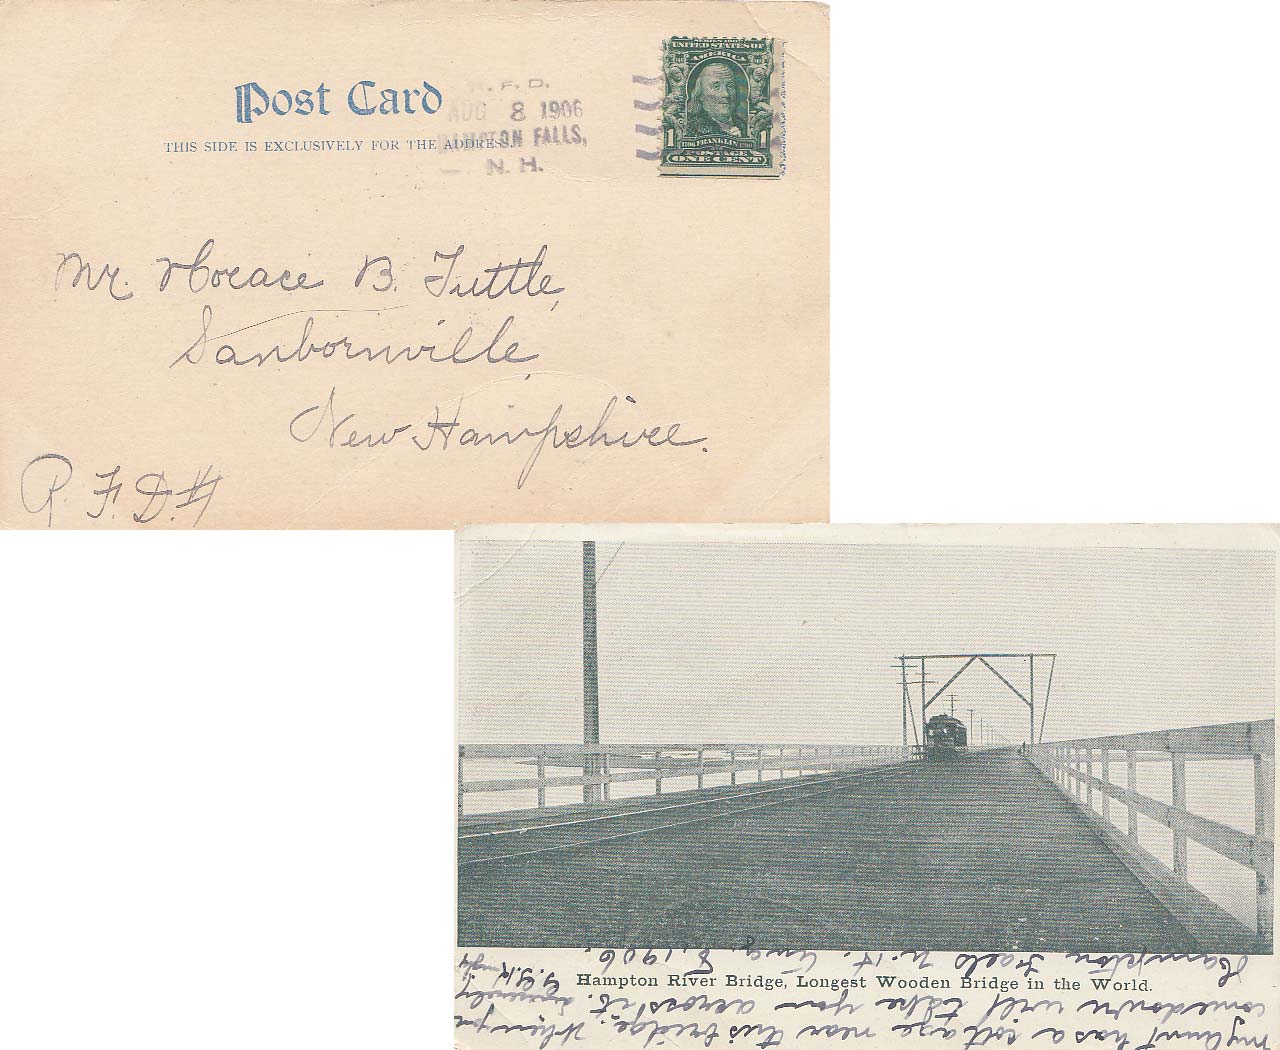 Post Card
THIS SIDE IS EXCLUSIVELY FOR THE ADDRESS.
R. F. D.
AUG 8 1906
HAMPTON FALLS,
N. H.
UNITED STATES OF
AMERICA
1 1
1706 FRANKLIN 1790
POSTAGE
ONE CENT
Mr. Horace B. Tuttle,
Sanbornville,
New Hampshire.
R. F. D. #1
Hampton River Bridge, Longest Wooden Bridge in the World.
My Aunt has a cottage near this bridge. When you
come down will take you across it. Sincerely
Hampton Falls N. H. Aug. 8, 1906.